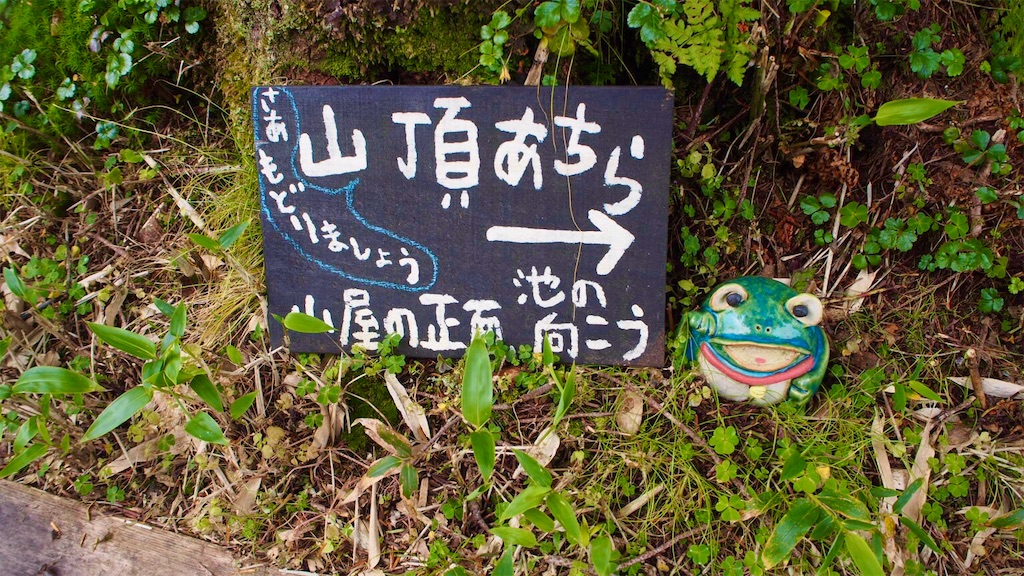 山頂あちら
→
さあもどりましょう
山屋の正面
池の
向こう